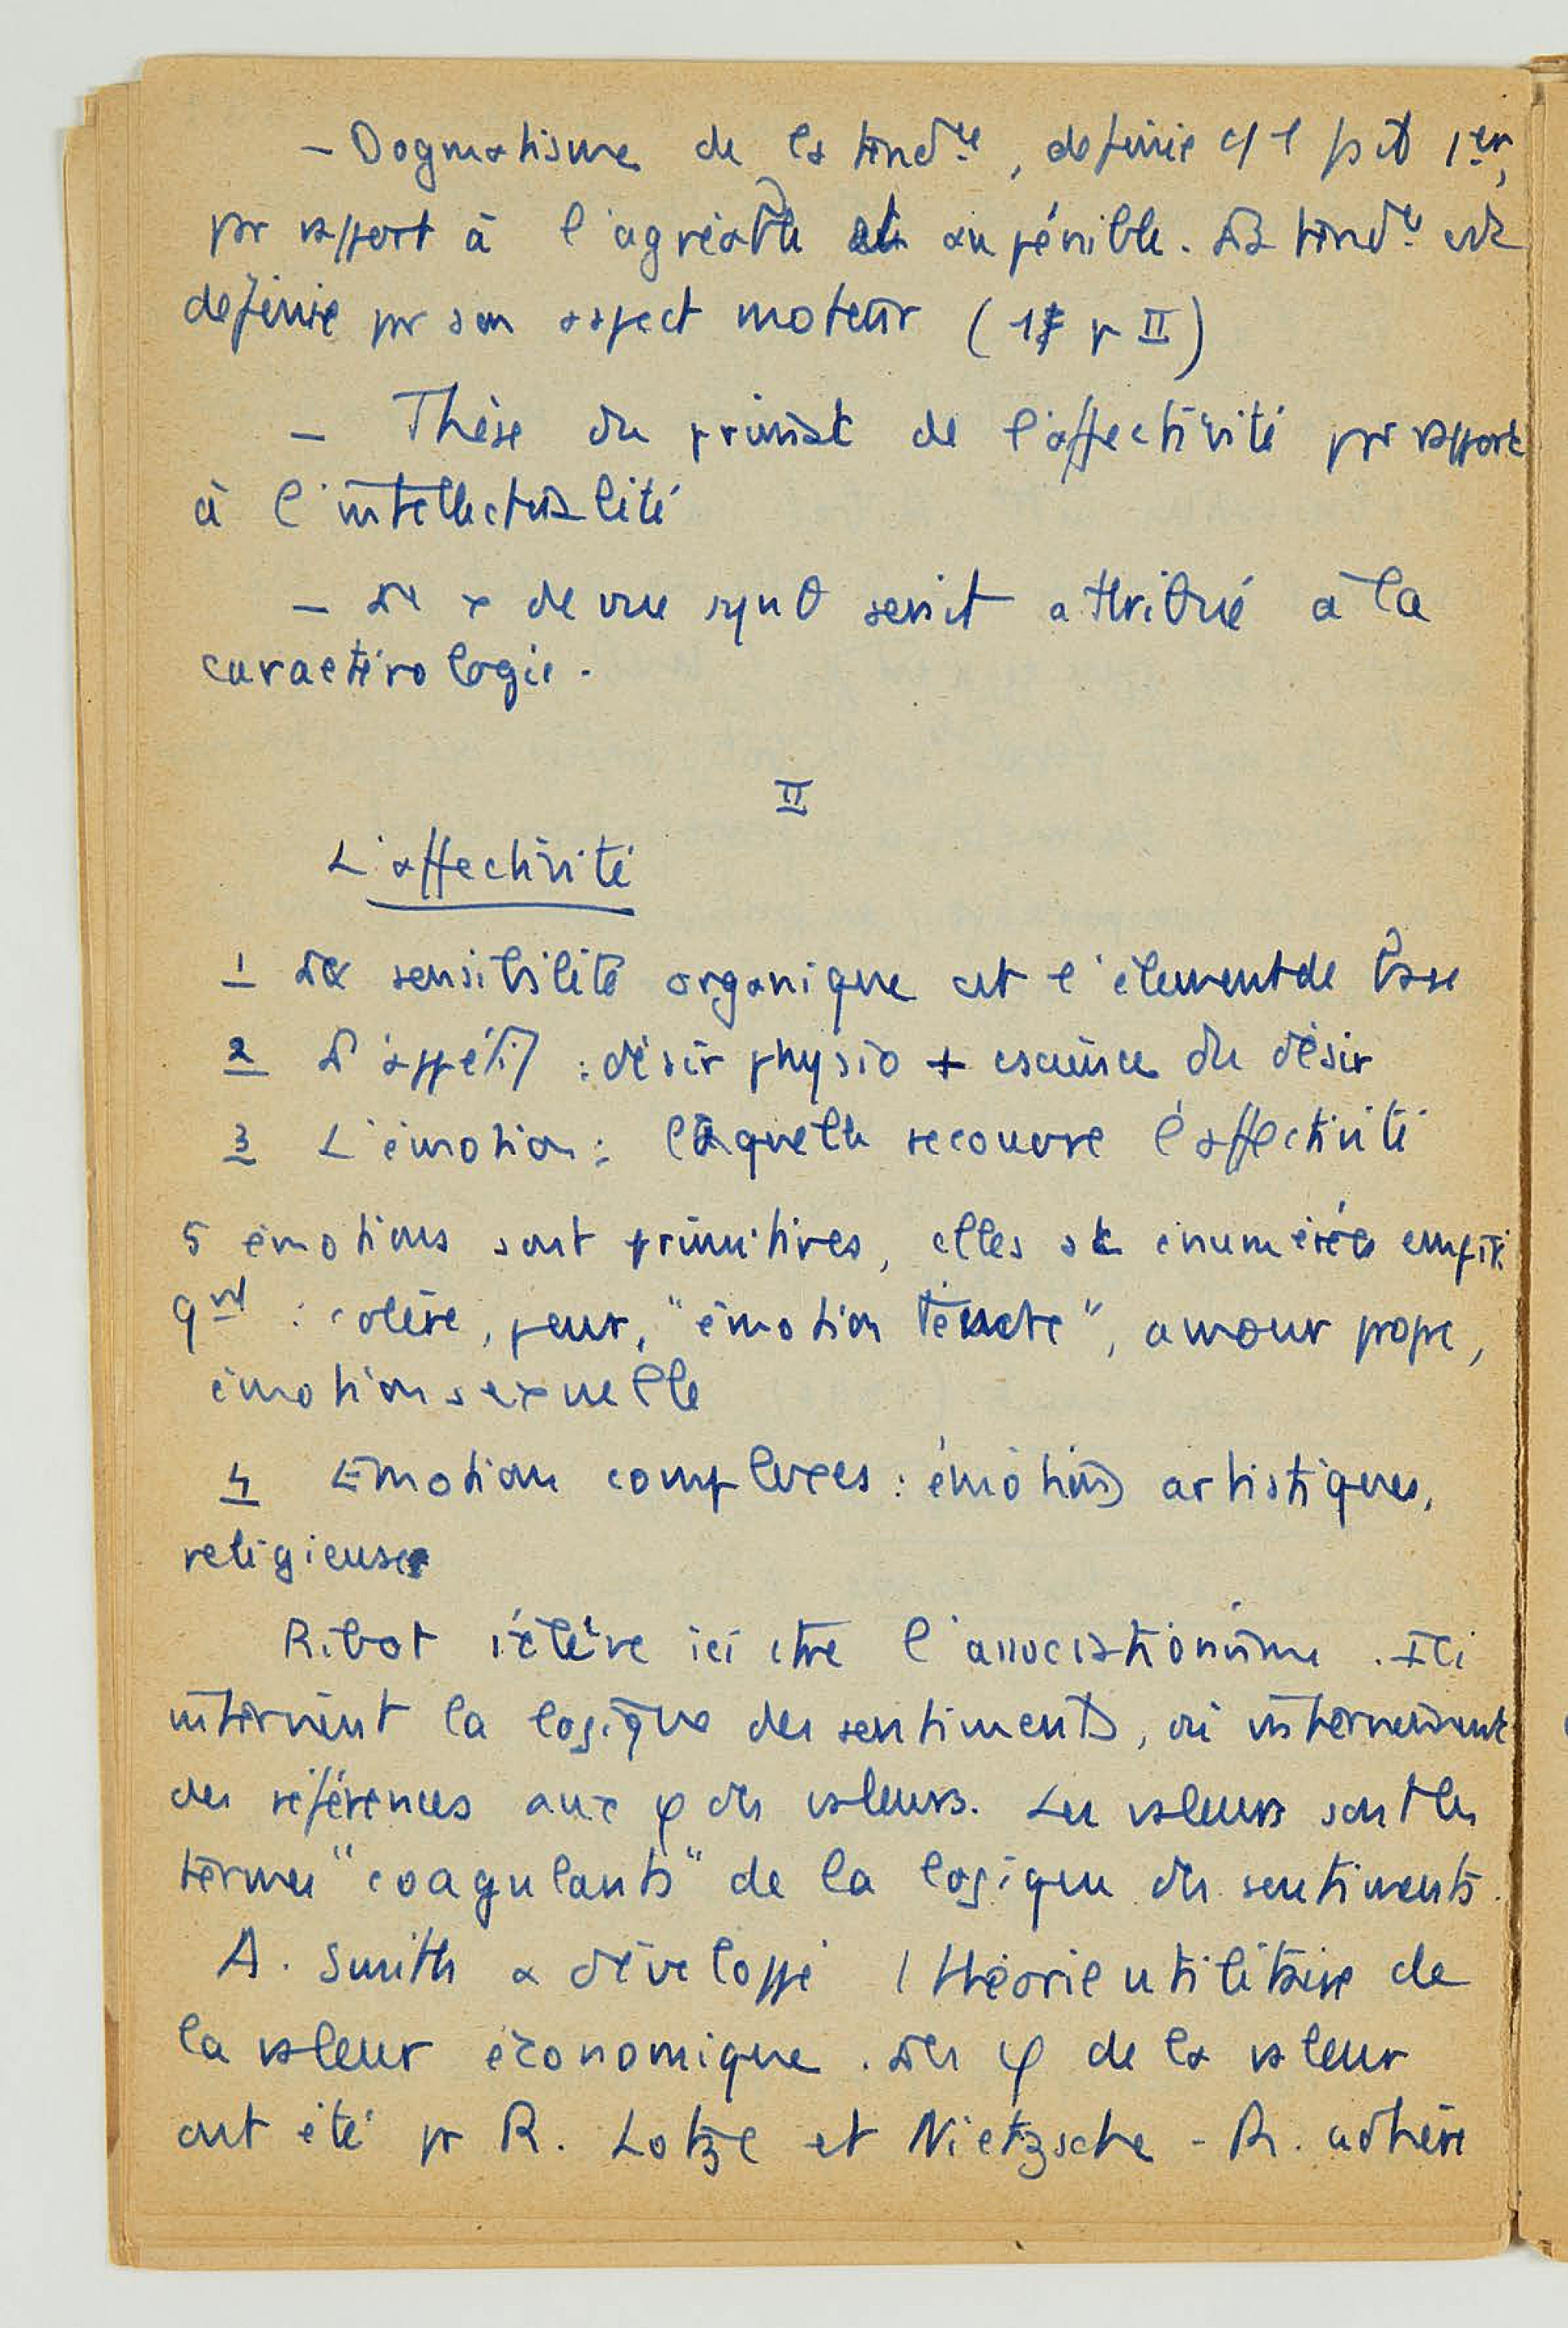 - Dogmatisme de la tendce, définie c/ 1 pt 1er,
pr rapport à l'agréable et au pénible. La tendce est
définie pr son aspect moteur (1 p II)
- Thèse du primat de l'affectivité pr rapport
à l'intellectualité
- de vue serait attribué à la
caractérologie.
II
L'affectivité
1 La sensibilité organique est l'élément de base
2 L'appétit : désir physio + cscience du désir
3 L'émotion : laquelle recouvre l'affectivité
5 émotions sont primitives, elles st énumérées empiri
qmt : colère, peur, "émotion tendre", amour propre,
émotion sexuelle
4 Emotion complexes : émotions artistiques,
religieuses
Ribot s'élève ici ctre l'associationisme. Ici
intervient la logique des sentiments, où interviennent
des références aux φ des valeurs. Les valeurs sont les
termes "coagulants" de la logique des sentiments.
A. Smith a développé 1 théorie utilitaire de
la valeur économique. Les φ de la valeur
ont été pr R. Lotze et Nietzsche - R. adhère